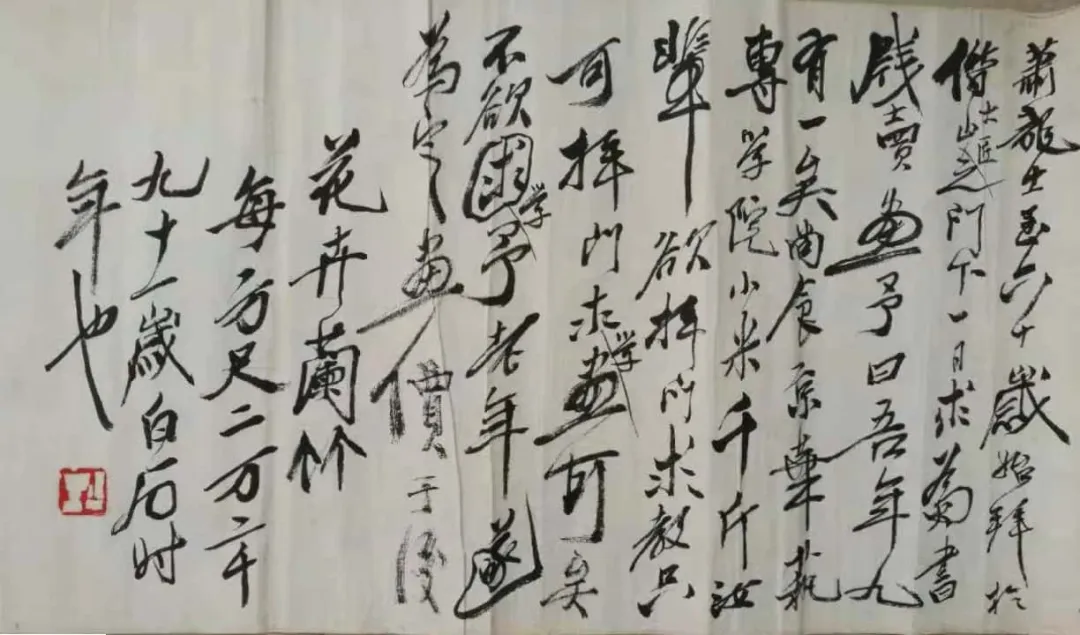 蕭龍士至六十歲始拜於
借山門下一日求為書
賣畫予曰吾年九
有一矣尚食京華藝
專學院小米千斤汝
輩欲拜門求教只
可拜門求學畫可矣
不欲困學予老年遂
為定畫價于后
花卉蘭竹
每方尺二万二千
九十一歲白石时
年也